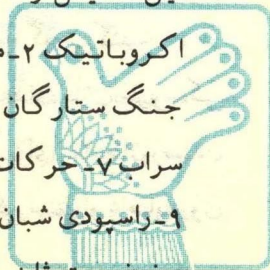 اکروباتیک ۲ـ
جنگ ستارگان
سراب ۷ـ حرکات
۹ـ راسپودی شبان